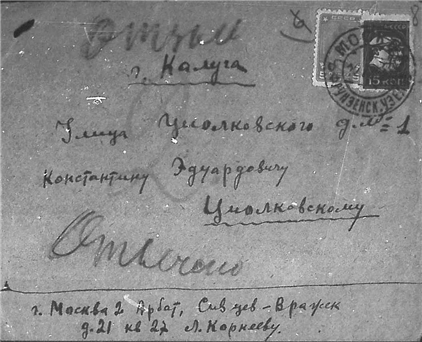 Отзыв
г. Калуга
Улица Циолковского д. № 1
Константину Эдуардовичу
Циолковскому
Отвечено
г. Москва 2 Арбат, Сивцев-Вражек
д. 21 кв 27 Л. Корнееву.
15 КОП